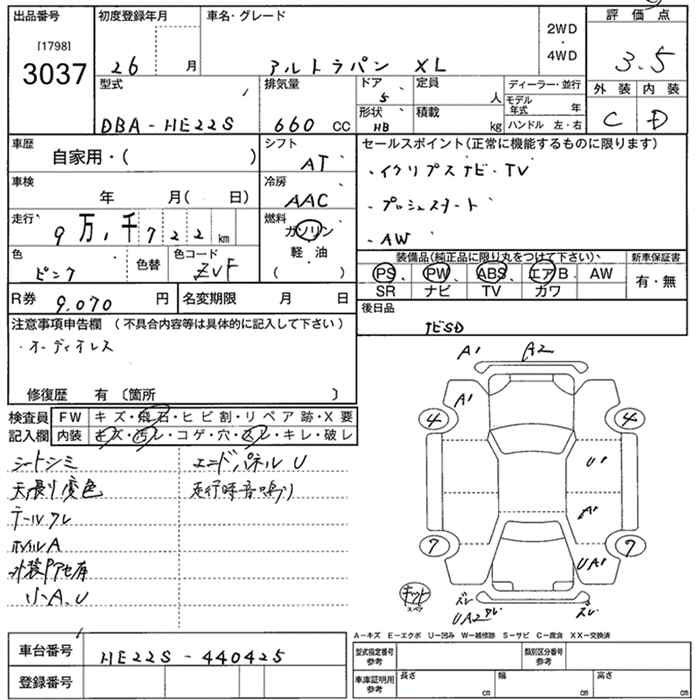 出品番号 初度登録年月 車名・グレード 2WD・4WD 評価点
[1798]
3037 26 月 アルトラパン XL 3.5
型式 排気量 ドア 定員 ディーラー・並行 外装 内装
5 人 モデル年式 年 C D
DBA-HE22S 660 CC 形状 HB 積載 kg ハンドル 左・右
車歴 シフト セールスポイント(正常に機能するものに限ります)
自家用・( ) AT ・イクリプスナビ・TV
車検 冷房 ・プッシュスタート
年 月( 日) AAC ・AW
走行 9万1千722km 燃料 ガソリン 軽油 ( )
装備品(純正品に限り丸をつけて下さい) 新車保証書
色 ピンク 色替 色コード ZVF PS PW ABS エアB AW 有・無
SR ナビ TV ガワ
R券 9.070 円 名変期限 月 日 後日品
注意事項申告欄 (不具合内容等は具体的に記入して下さい) ナビSD
・オーディオレス
修復歴 有 〔箇所 〕
検査員 FW キズ・飛石・ヒビ割・リペア跡・X要
記入欄 内装 キズ・汚レ・コゲ・穴・スレ・キレ・破レ
シートシミ エンドパネルU
天張り変色 走行時音鳴り
テールワレ
ホイルA
外装下廻有
小A.U
A1 A2
A1
4 4
U1
A1
7 7
UA1
キット スペア
ズレ UA2ワレ ズレ
A-キズ E-エクボ U-凹み W-補修跡 S-サビ C-腐食 XX-交換済
車台番号 HE22S-440425 型式指定番号 参考 類別区分番号 参考
登録番号 車庫証明用 参考 長さ cm 幅 cm 高さ cm